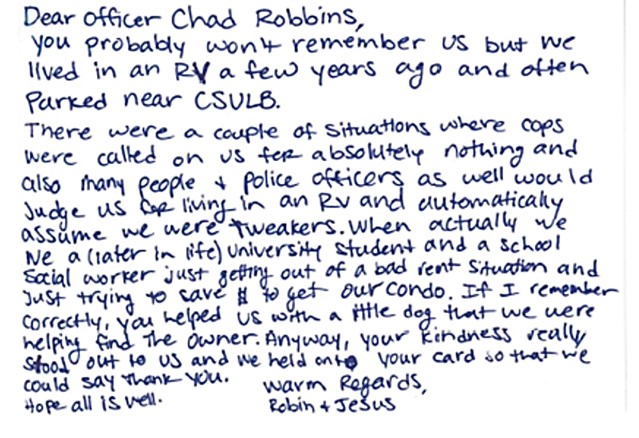 Dear officer Chad Robbins,
you probably won't remember us but we
lived in an RV a few years ago and often
Parked near CSULB.
There were a couple of situations where cops
were called on us for absolutely nothing and
also many people + police officers as well would
Judge us for living in an RV and automatically
assume we were tweakers. When actually we
we a (later in life) University student and a school
Social worker just getting out of a bad rent situation and
Just trying to save $ to get our condo. If I remember
correctly, you helped us with a little dog that we were
helping find the owner. Anyway, your kindness really
stood out to us and we held onto your card so that we
could say thank you.
Hope all is well.
Warm Regards,
Robin + Jesus